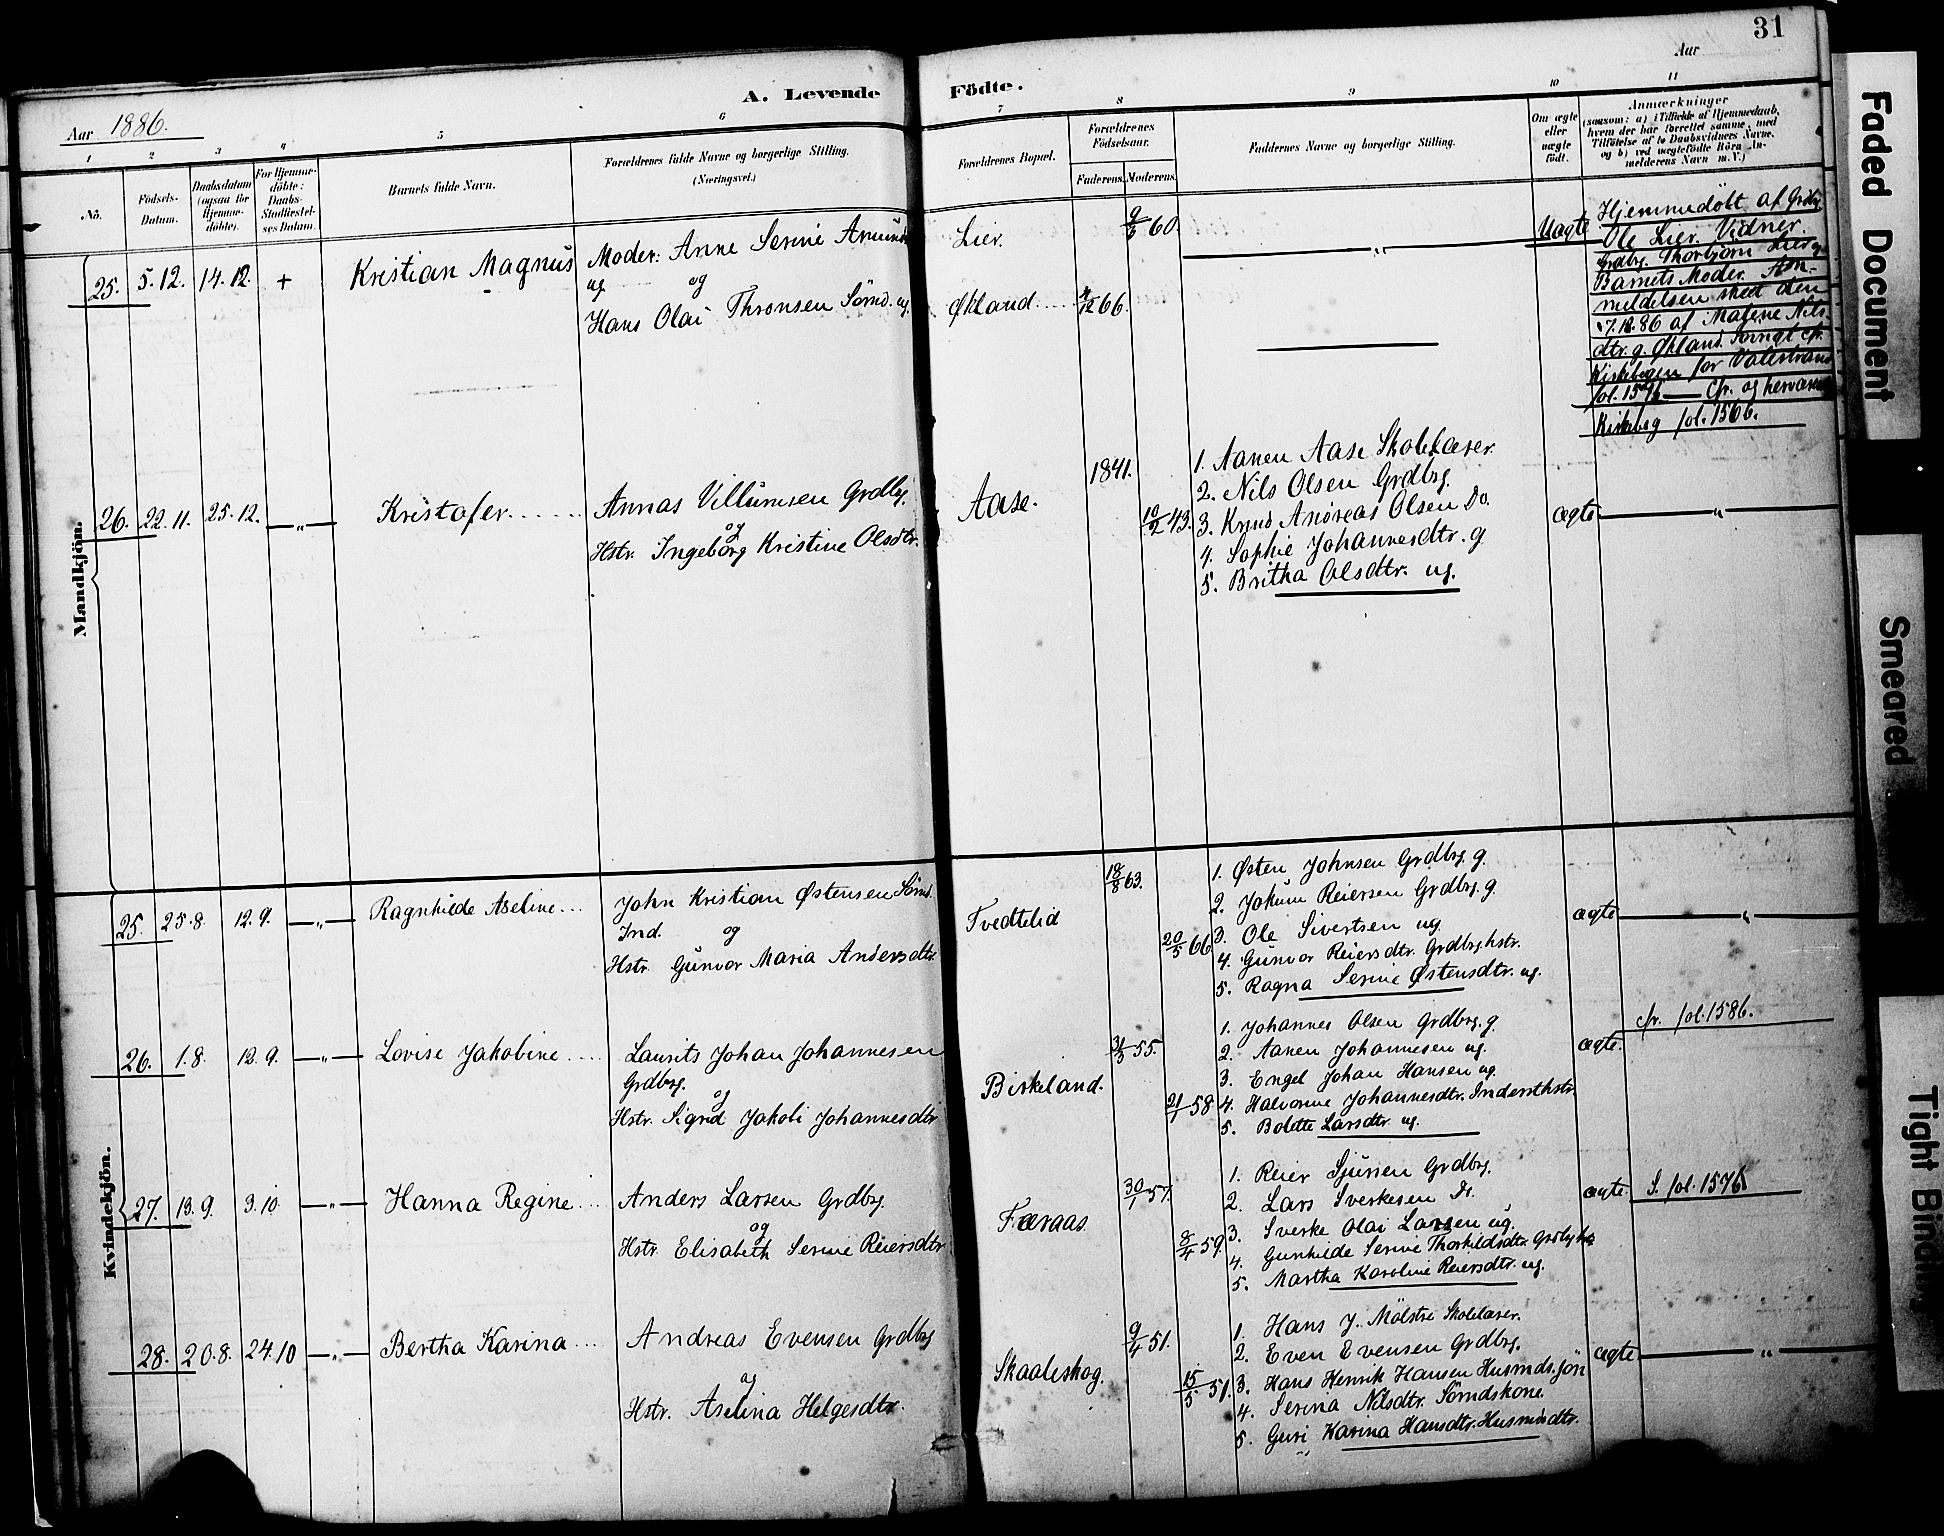 31
A. Levende Födte.
Aar 1886.
Aar
1 2 3 4 5 6 7 8 9 10 11
No.
Födsels-Datum.
Daabsdatum (ogsaa for Hjemme-döbte).
For Hjemme-döbte: Daabs-Stadfæstel-ses Datum.
Barnets fulde Navn.
Forældrenes fulde Navne og borgerlige Stilling. (Næringsvei.)
Forældrenes Bopæl.
Forældrenes Födselsaar.
Faderens. Moderens.
Faddernes Navne og borgerlige Stilling.
Om ægte eller uægte födt.
Anmærkninger
(saasom: a) i Tilfælde af Hjemmedaab,
hvem der har forrettet samme, med
Tilföielse af to Daabsvidners Navne,
og b) ved uægtefödte Börn An-
melderens Navn m. V.)
Mandkjön.
25. 5.12. 14.12. + Kristian Magnus
Moder: Anne Serine Amunds
ug og
Hans Olai Thronsen Sömd. ug.
Lier. 9/6 60.
Økland 4/12 66.
„
Uægte
Hjemmedöbt af Grdbr.
Ole Lier. Vidner
Grdbrg. Thorbjörn Lier og
Barnets Moder. An-
meldelsen skeet den
17.12.86 af Malene Nils-
dtr. g. Økland. Forngt cfr.
Kirkebogen for Valestrand
fol. 157b — Cfr. og herværende
Kirkebog fol. 156b.
26. 22.11. 25.12. —„— Kristofer
Annas Villumsen Grdbg.
og
Hstr. Ingeborg Kristine Olsdtr.
Aase.
1841.
10/2 43.
1. Aanen Aase Skolelærer.
2. Nils Olsen Grdbrg.
3. Knud Andreas Olsen Do.
4. Sophie Johannesdtr. g
5. Britha Olsdtr. ug.
ægte „
Kvindekjön.
25. 25.8. 12.9. —„— Ragnhilde Aseline
John Kristian Østensen Sömd.
Ind. og
Hstr. Gunvor Maria Andersdtr.
Tvedtelid
18/8 63.
20/5 66
1. Østen Johnsen Grdbrg. g.
2. Jokum Reiersen Grdbrg. g.
3. Ole Sivertsen ug.
4. Gunvor Reiersdtr. Grdbrghstr.
5. Ragna Serine Østensdtr. ug.
ægte „
26. 1.8. 12.9. —„— Lovise Jakobine
Laurits Johan Johannesen
Grdbrg.
og
Hstr. Sigrid Jakobi Johannesdtr
Birkeland.
31/3 55.
21/1 58
1. Johannes Olsen Grdbrg. g.
2. Aanen Johannesen ug.
3. Engel Johan Hansen ug.
4. Halvorine Johannesdtr. Indersthstr.
5. Bolette Larsdtr. ug.
ægte.
cfr. fol. 158b.
27. 13.9. 3.10. —„— Hanna Regine
Anders Larsen Grdbrg.
og
Hstr. Elisabeth Serine Reiersdtr
Færaas.
30/1 57.
8/4 59.
1. Reier Sjursen Grdbrg.
2. Lars Sverkesen Do.
3. Sverke Olai Larsen ug.
4. Gunhilde Serine Thorkildsdtr. Grdbrghstr
5. Martha Karoline Reiersdtr. ug.
ægte
S. fol. 157b
28. 20.8. 24.10 —„— Bertha Karina
Andreas Evensen Grdbrg
og
Hstr. Aselina Helgesdtr.
Skaaleskog.
9/4 51.
15/5 51.
1. Hans J. Mölstre Skolelærer.
2. Even Evensen Grdbrg.
3. Hans Henrik Hansen Husmds. sön
4. Serina Nilsdtr. Sömdskone
5. Guri Karina Hansdtr. Husmdsdtr.
ægte „
Faded Document
Smeared
Tight Binding